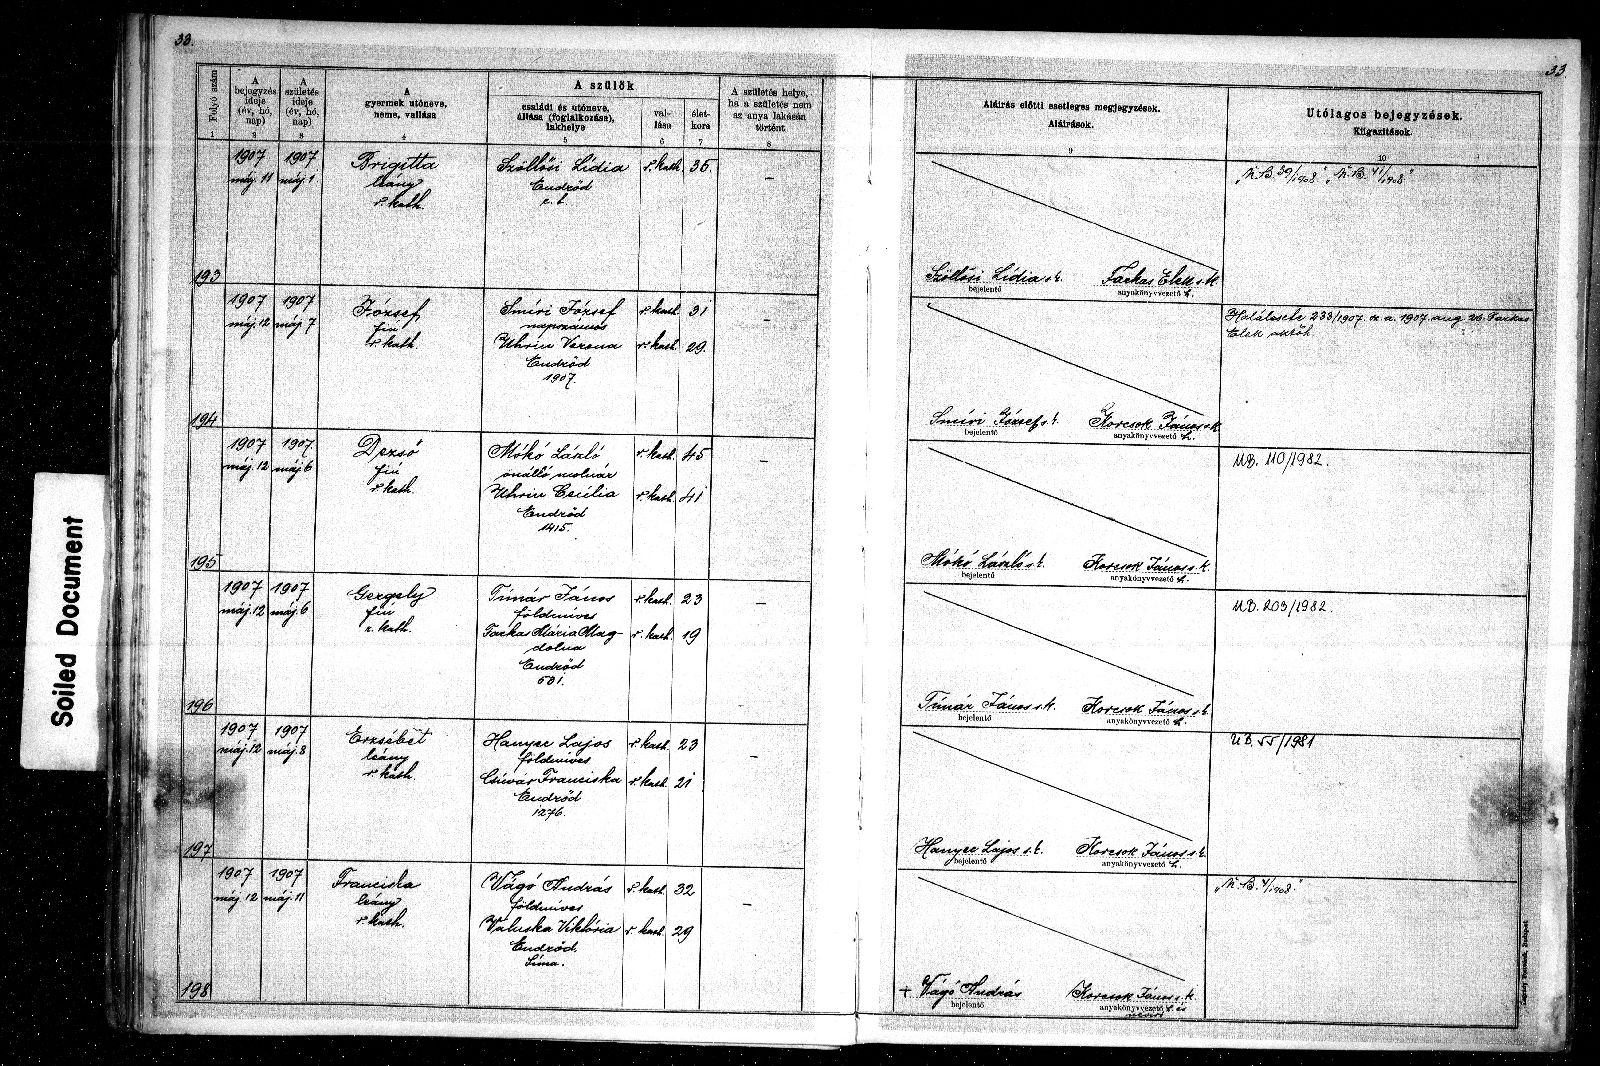 33.
33
Folyó szám
A bejegyzés ideje (év, hó, nap)
A születés ideje (év, hó, nap)
A gyermek utóneve, neme, vallása
A szülők
családi és utóneve, állása (foglalkozása), lakhelye
vallása
életkora
A születés helye, ha a születés nem az anya lakásán történt
Aláírás előtti esetleges megjegyzések.
Aláírások.
Utólagos bejegyzések.
Kiigazítások.
1 2 3 4 5 6 7 8 9 10
193
1907 1907 Brigitta Szöllősi Lídia r. kath. 36 –
máj. 11 máj. 1 leány Endrőd
r. kath.
Szöllősi Lídia s. k. Farkas Elek s. k.
bejelentő anyakönyvvezető h.
194
1907 1907 József Smíri József r. kath. 31 –
máj. 12 máj. 7 fiú napszámos
r. kath. Uhrin Verona r. kath. 29.
Endrőd
1907.
Halálesete 233/1907 sz. a. 1907 aug. 26. Farkas
Elek
Smíri József s. k. Korcsok János s. k.
bejelentő anyakönyvvezető h.
195
1907 1907. Dezső Mókó László r. kath. 45 –
máj. 12 máj. 6 fiú önálló molnár
r. kath. Uhrin Cecília r. kath. 41
Endrőd
1415.
UB. 110/1982.
Mókó László s. k. Korcsok János s. k.
bejelentő anyakönyvvezető h.
196
1907 1907 Gergely Tímár János r. kath. 23 –
máj. 12 máj. 6 fiú földmíves
r. kath. Farkas Mária Mag-
dolna r. kath. 19
Endrőd
531.
UB. 203/1982.
Tímár János s. k. Korcsok János s. k.
bejelentő anyakönyvvezető h.
197
1907 1907 Erzsébet Hanyec Lajos r. kath. 23 –
máj. 12 máj. 8 leány földmíves
r. kath. Csúvár Franciska r. kath. 21
Endrőd
1276.
UB. 55/1981
Hanyec Lajos s. k. Korcsok János s. k.
bejelentő anyakönyvvezető h.
198
1907 1907 Franciska Vágó András r. kath. 32 –
máj. 12 máj. 11 leány földmíves
r. kath. Valuska Viktória r. kath. 29
Endrőd
Síma.
+ Vágó András Korcsok János s. k.
bejelentő anyakönyvvezető h. és
Soiled Document